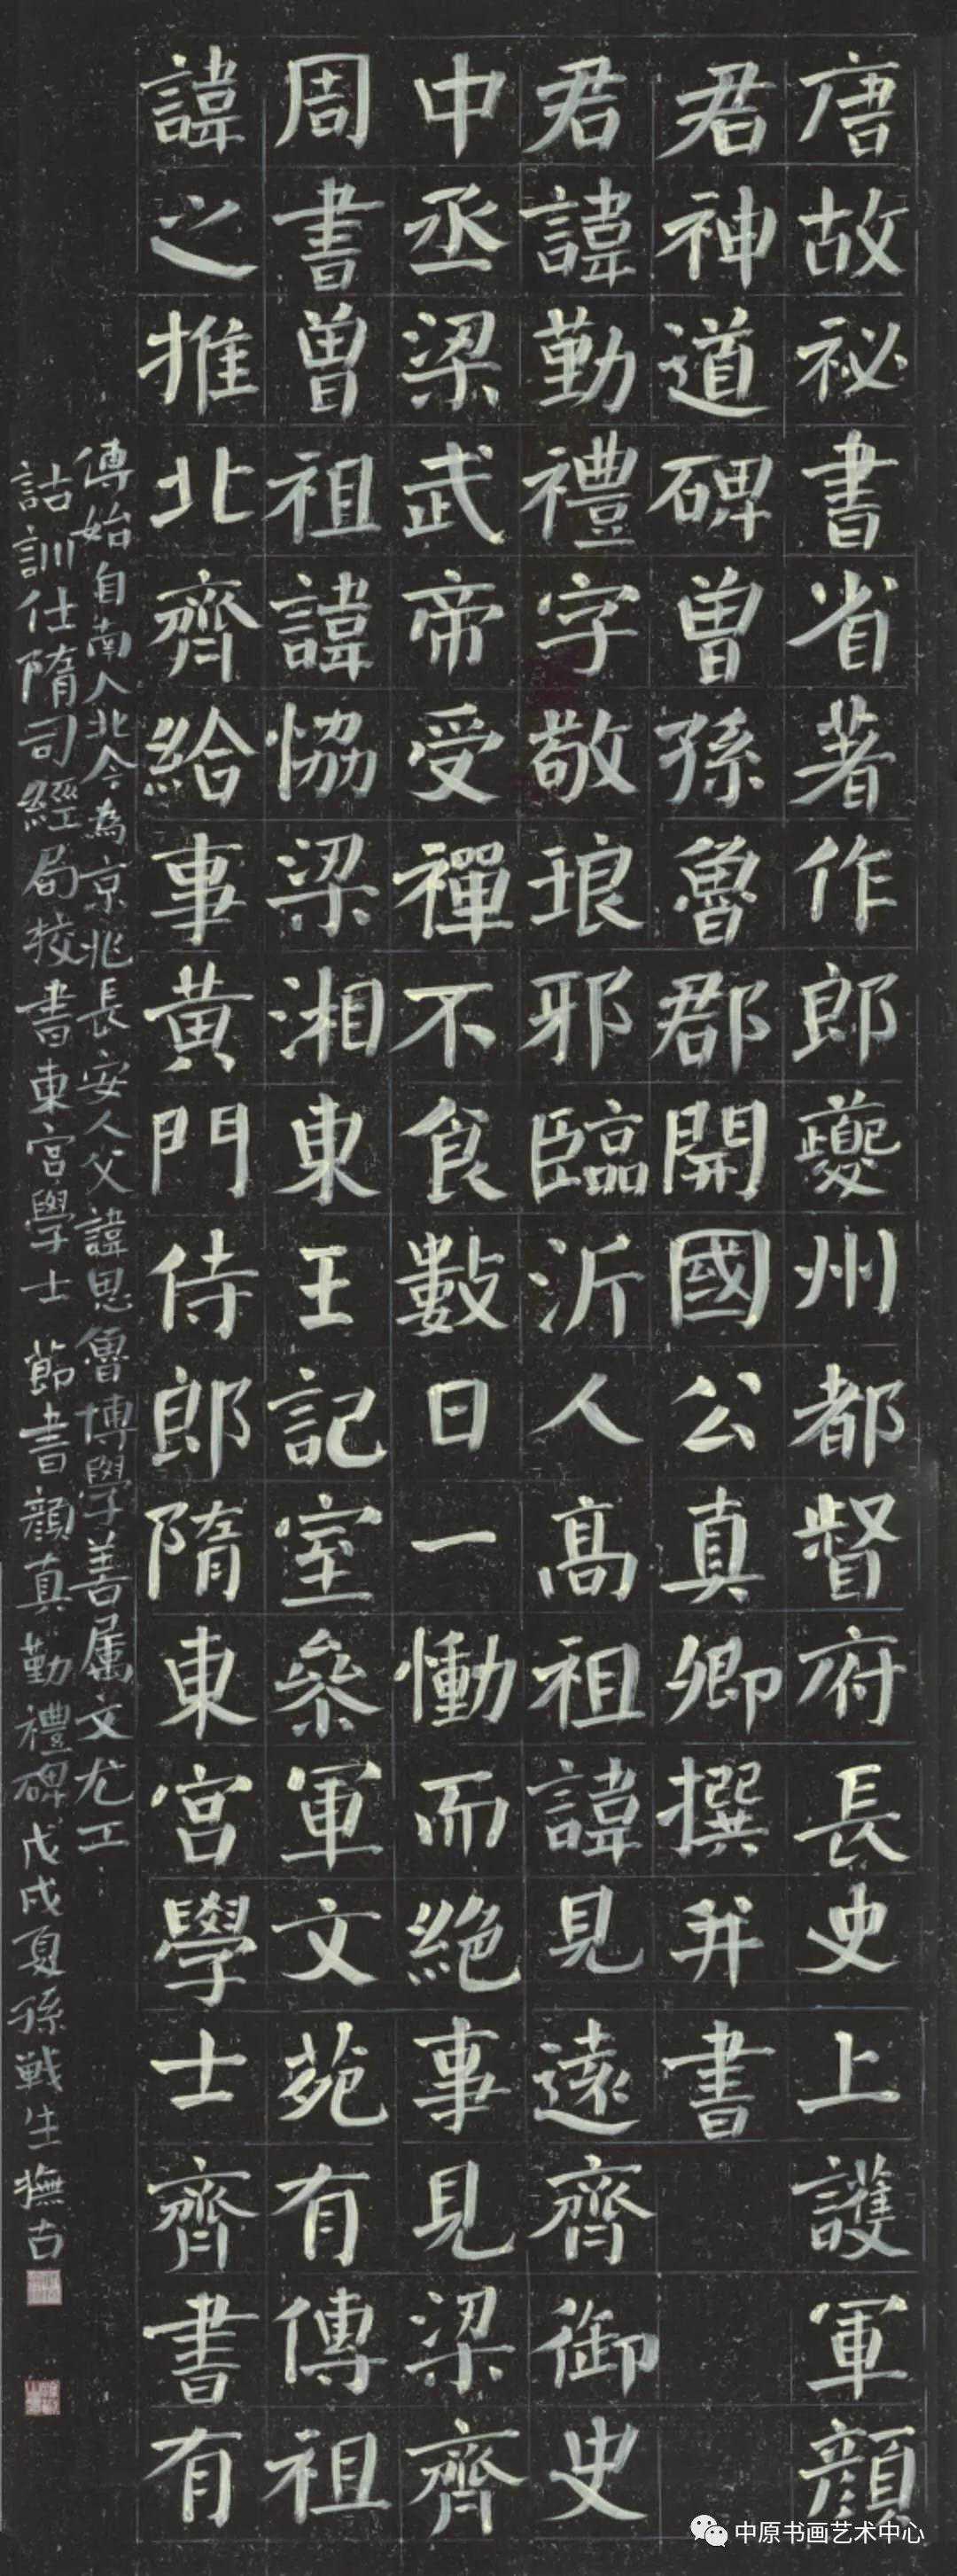 唐故祕書省著作郎夔州都督府長史上護軍顏
君神道碑曾孫魯郡開國公真卿撰并書
君諱勤禮字敬琅邪臨沂人高祖諱見遠齊御史
中丞梁武帝受禪不食數日一慟而絕事見梁齊
周書曾祖諱恊梁湘東王記室參軍文苑有傳祖
諱之推北齊給事黃門侍郎隋東宮學士齊書有
傳始自南人北今為京兆長安人父諱思魯博學善屬文尤工
詁訓仕隋司經局校書東宮學士 節書顏真勤禮碑戊戌夏孫戰生撫古
中原书画艺术中心